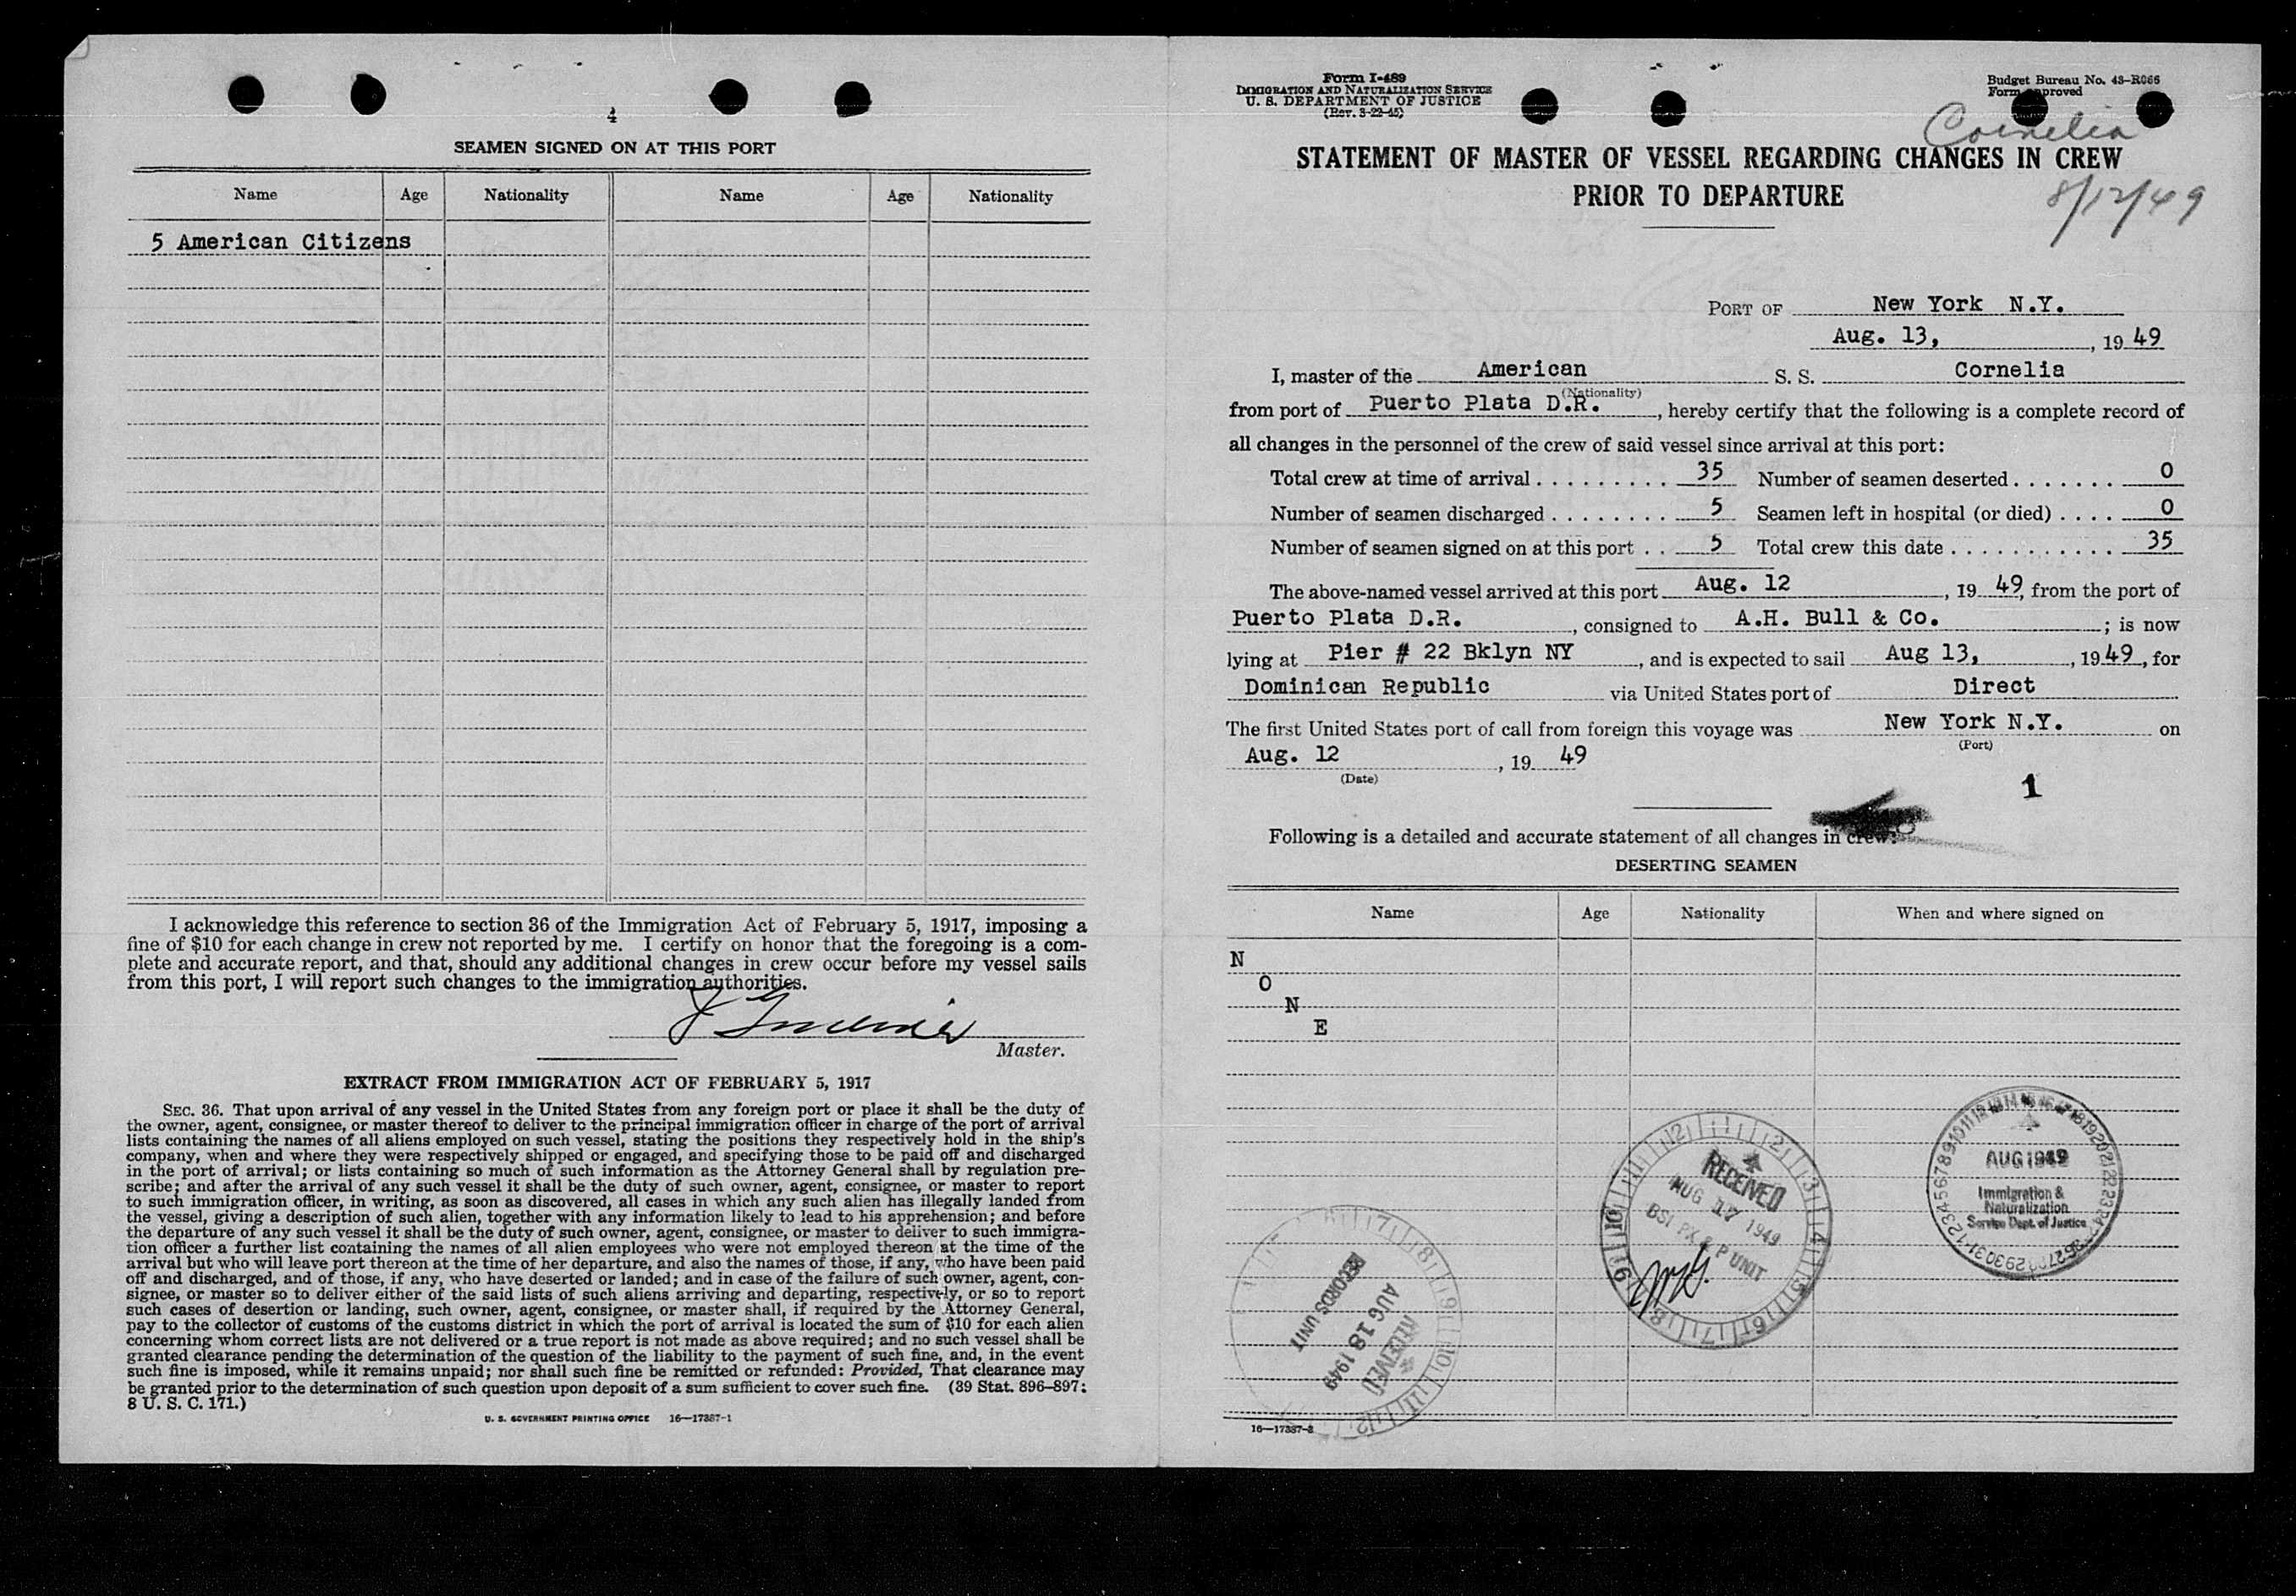 4
SEAMEN SIGNED ON AT THIS PORT
Name Age Nationality Name Age Nationality
5 American Citizens
I acknowledge this reference to section 36 of the Immigration Act of February 5, 1917, imposing a
fine of $10 for each change in crew not reported by me. I certify on honor that the foregoing is a com-
plete and accurate report, and that, should any additional changes in crew occur before my vessel sails
from this port, I will report such changes to the immigration authorities.
Master.
EXTRACT FROM IMMIGRATION ACT OF FEBRUARY 5, 1917
SEC. 36. That upon arrival of any vessel in the United States from any foreign port or place it shall be the duty of
the owner, agent, consignee, or master thereof to deliver to the principal immigration officer in charge of the port of arrival
lists containing the names of all aliens employed on such vessel, stating the positions they respectively hold in the ship's
company, when and where they were respectively shipped or engaged, and specifying those to be paid off and discharged
in the port of arrival; or lists containing so much of such information as the Attorney General shall by regulation pre-
scribe; and after the arrival of any such vessel it shall be the duty of such owner, agent, consignee, or master to report
to such immigration officer, in writing, as soon as discovered, all cases in which any such alien has illegally landed from
the vessel, giving a description of such alien, together with any information likely to lead to his apprehension; and before
the departure of any such vessel it shall be the duty of such owner, agent, consignee, or master to deliver to such immigra-
tion officer a further list containing the names of all alien employees who were not employed thereon at the time of the
arrival but who will leave port thereon at the time of her departure, and also the names of those, if any, who have been paid
off and discharged, and of those, if any, who have deserted or landed; and in case of the failure of such owner, agent, con-
signee, or master so to deliver either of the said lists of such aliens arriving and departing, respectively, or so to report
such cases of desertion or landing, such owner, agent, consignee, or master shall, if required by the Attorney General,
pay to the collector of customs of the customs district in which the port of arrival is located the sum of $10 for each alien
concerning whom correct lists are not delivered or a true report is not made as above required; and no such vessel shall be
granted clearance pending the determination of the question of the liability to the payment of such fine, and, in the event
such fine is imposed, while it remains unpaid; nor shall such fine be remitted or refunded: Provided, That clearance may
be granted prior to the determination of such question upon deposit of a sum sufficient to cover such fine. (39 Stat. 896–897;
8 U. S. C. 171.)
U. S. GOVERNMENT PRINTING OFFICE 16—17387-1
Form I-489
IMMIGRATION AND NATURALIZATION SERVICE
U. S. DEPARTMENT OF JUSTICE
(Rev. 3-22-45)
Budget Bureau No. 43–R066
Form approved
Cornelia
STATEMENT OF MASTER OF VESSEL REGARDING CHANGES IN CREW
PRIOR TO DEPARTURE
8/12/49
PORT OF New York N.Y.
Aug. 13, , 19 49
I, master of the American S. S. Cornelia
(Nationality)
from port of Puerto Plata D.R. , hereby certify that the following is a complete record of
all changes in the personnel of the crew of said vessel since arrival at this port:
Total crew at time of arrival . . . . . . . . . 35 Number of seamen deserted . . . . . . . 0
Number of seamen discharged . . . . . . . . 5 Seamen left in hospital (or died) . . . . 0
Number of seamen signed on at this port . . 5 Total crew this date . . . . . . . . . . . . 35
The above-named vessel arrived at this port Aug. 12 , 19 49, from the port of
Puerto Plata D.R. , consigned to A.H. Bull & Co. ; is now
lying at Pier # 22 Bklyn NY , and is expected to sail Aug 13, , 19 49, for
Dominican Republic via United States port of Direct
The first United States port of call from foreign this voyage was New York N.Y. on
(Port)
Aug. 12 , 19 49
(Date)
1
Following is a detailed and accurate statement of all changes in crew:
DESERTING SEAMEN
Name Age Nationality When and where signed on
N
O
N
E
RECEIVED
AUG 17 1949
BSI PX & P UNIT
AUG 1949
Immigration &
Naturalization
Service Dept. of Justice
RECORDS UNIT
AUG 18 1949
RECEIVED
16—17387-2